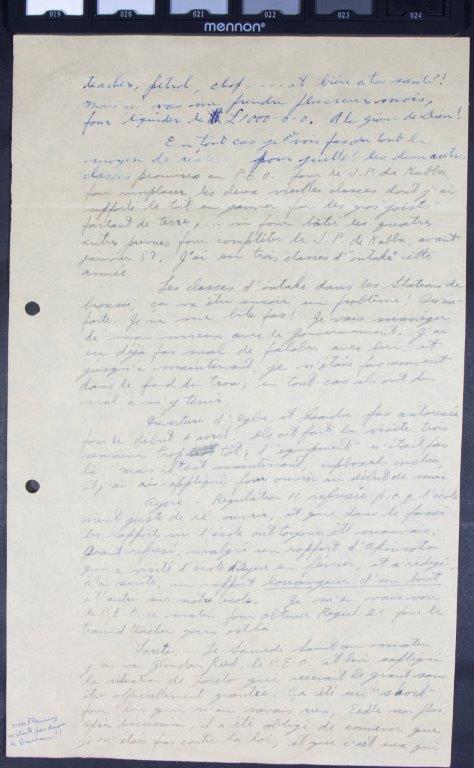 019 020 021 022 023 024
mennon
teacher, petrol, chop, ... et bien à ta santé!
mais ça va me prendre plusieurs mois,
pour liquider le £1000-0-0. A la grâce de Dieu!
En tout cas je ne vois pas du tout le
moyen de pour juillet les deux autres
classes promises au P.E.O. pour le J.P. de Kabba,
pour remplacer les deux vieilles classes dont j'ai
supporté le toit en janvier par des gros "joists"
partant de terre, ... ni pour bâtir les quatre
autres prévues pour compléter le J.P. de Kabba, avant
janvier 57. J'ai eu trois classes d'"intake" cette
année.
Les classes d'intake dans les Stations de
brousse, ça va être encore un problème! Qu'im-
porte. Je ne me bile pas! Je vais manoeuvrer
de mon mieux avec le Gouvernement. J'ai
eu déjà pas mal de palabre avec lui, et
jusqu'à maintenant, je n'étais pas souvent
dans le fond du trou; en tout cas ils ont du
mal à m'y tenir.
Ouverture d'Egbe et pas autorisée
pour le début d'avril. Ils ont fait la visite trois
semaines trop tôt; l'"equipment" n'était pas
là. Mais il l'est maintenant, cupboards inclus,
et j'ai ré-appliqué pour ouvrir au début de mai.
Ayere - Regulation 11 refusée p.c.q. l'école
vient juste de ré-ouvrir, et que dans le passé
les rapports sur l'école ont toujours été mauvais.
refusé, malgré un rapport d'
qui a visité l'école d'Ayere en février, et a rédigé,
à la suite, un rapport louangeur d'un bout
à l'autre sur notre école. Je m'en vais voir
le P.E.O. ce matin pour obtenir Regul. 21 pour le
trained teacher qui est là.
Loreto - Le Samedi Saint au matin
j'ai vu Reed, le P.E.O. et lui expliqué
la situation de Loreto qui recevait le grant sans
être officiellement grantée. Ça été un "shock"
pour lui qui n'en savait rien, Eedle non plus.
Après discussion, il a été obligé de convenir que
je n'étais pas contre la loi, et que c'est eux qui
Miss Fleming
n'était pas dans
le bureau!!